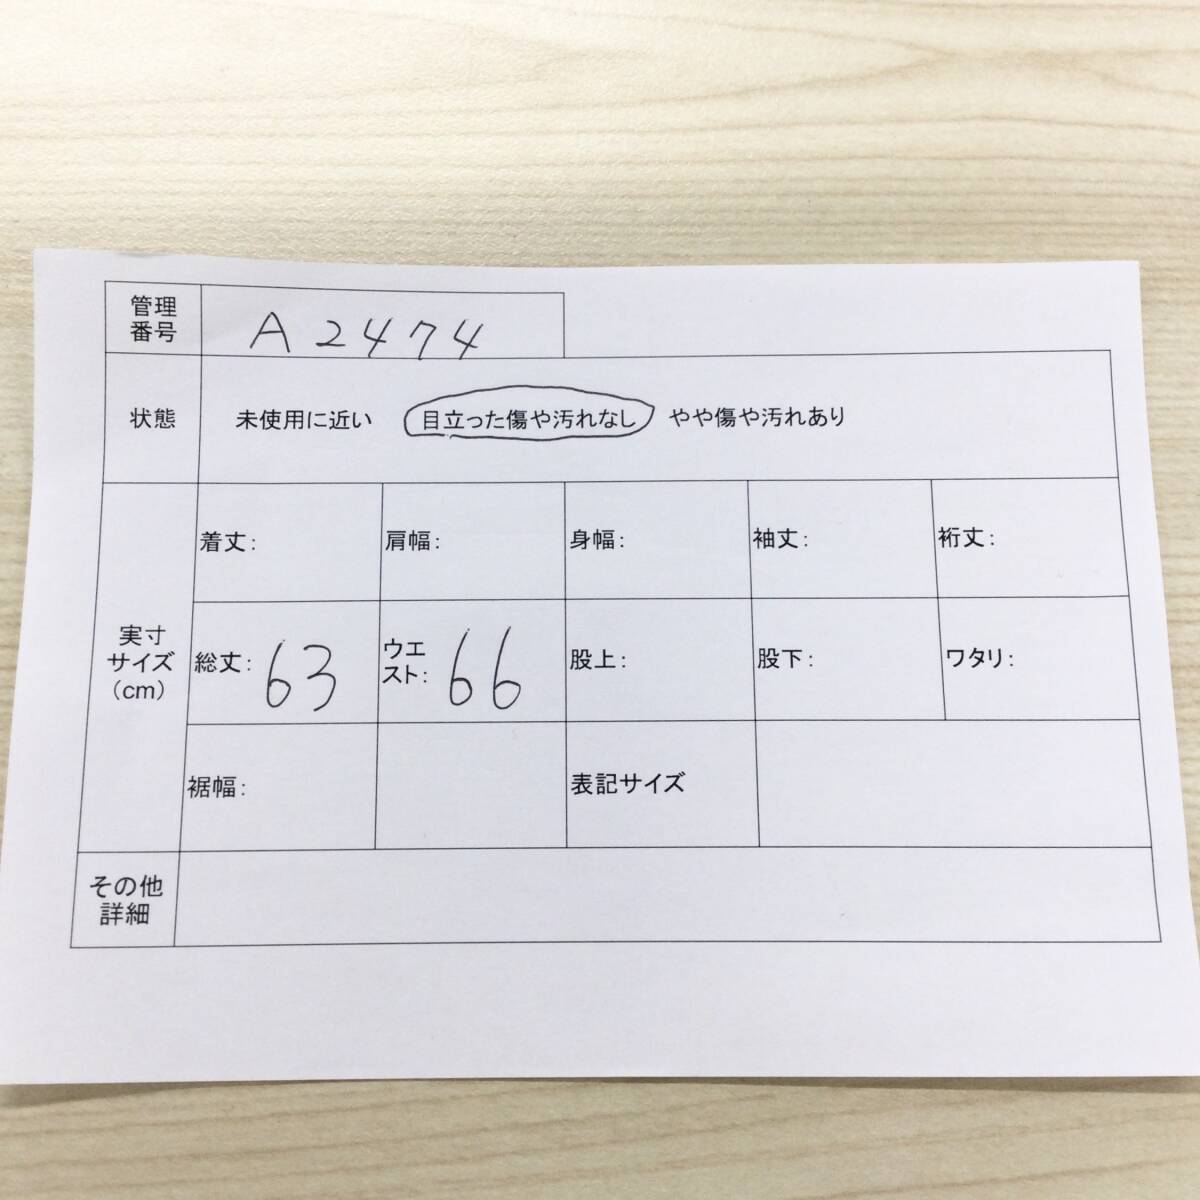 管理
番号
A2474
状態
未使用に近い 目立った傷や汚れなし やや傷や汚れあり
実寸
サイズ
（cm）
着丈： 肩幅： 身幅： 袖丈： 裄丈：
総丈： 63 ウエ
スト： 66 股上： 股下： ワタリ：
裾幅： 表記サイズ
その他
詳細